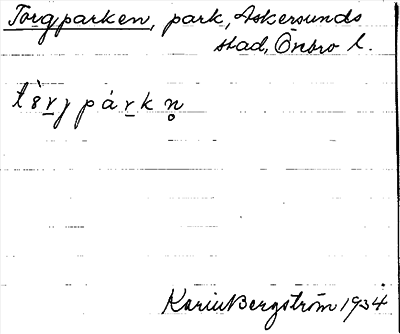 Torgparken, park, Askersunds
stad, Örebro l.
tȯ̀rj párkn̥
Karin Bergström 1934